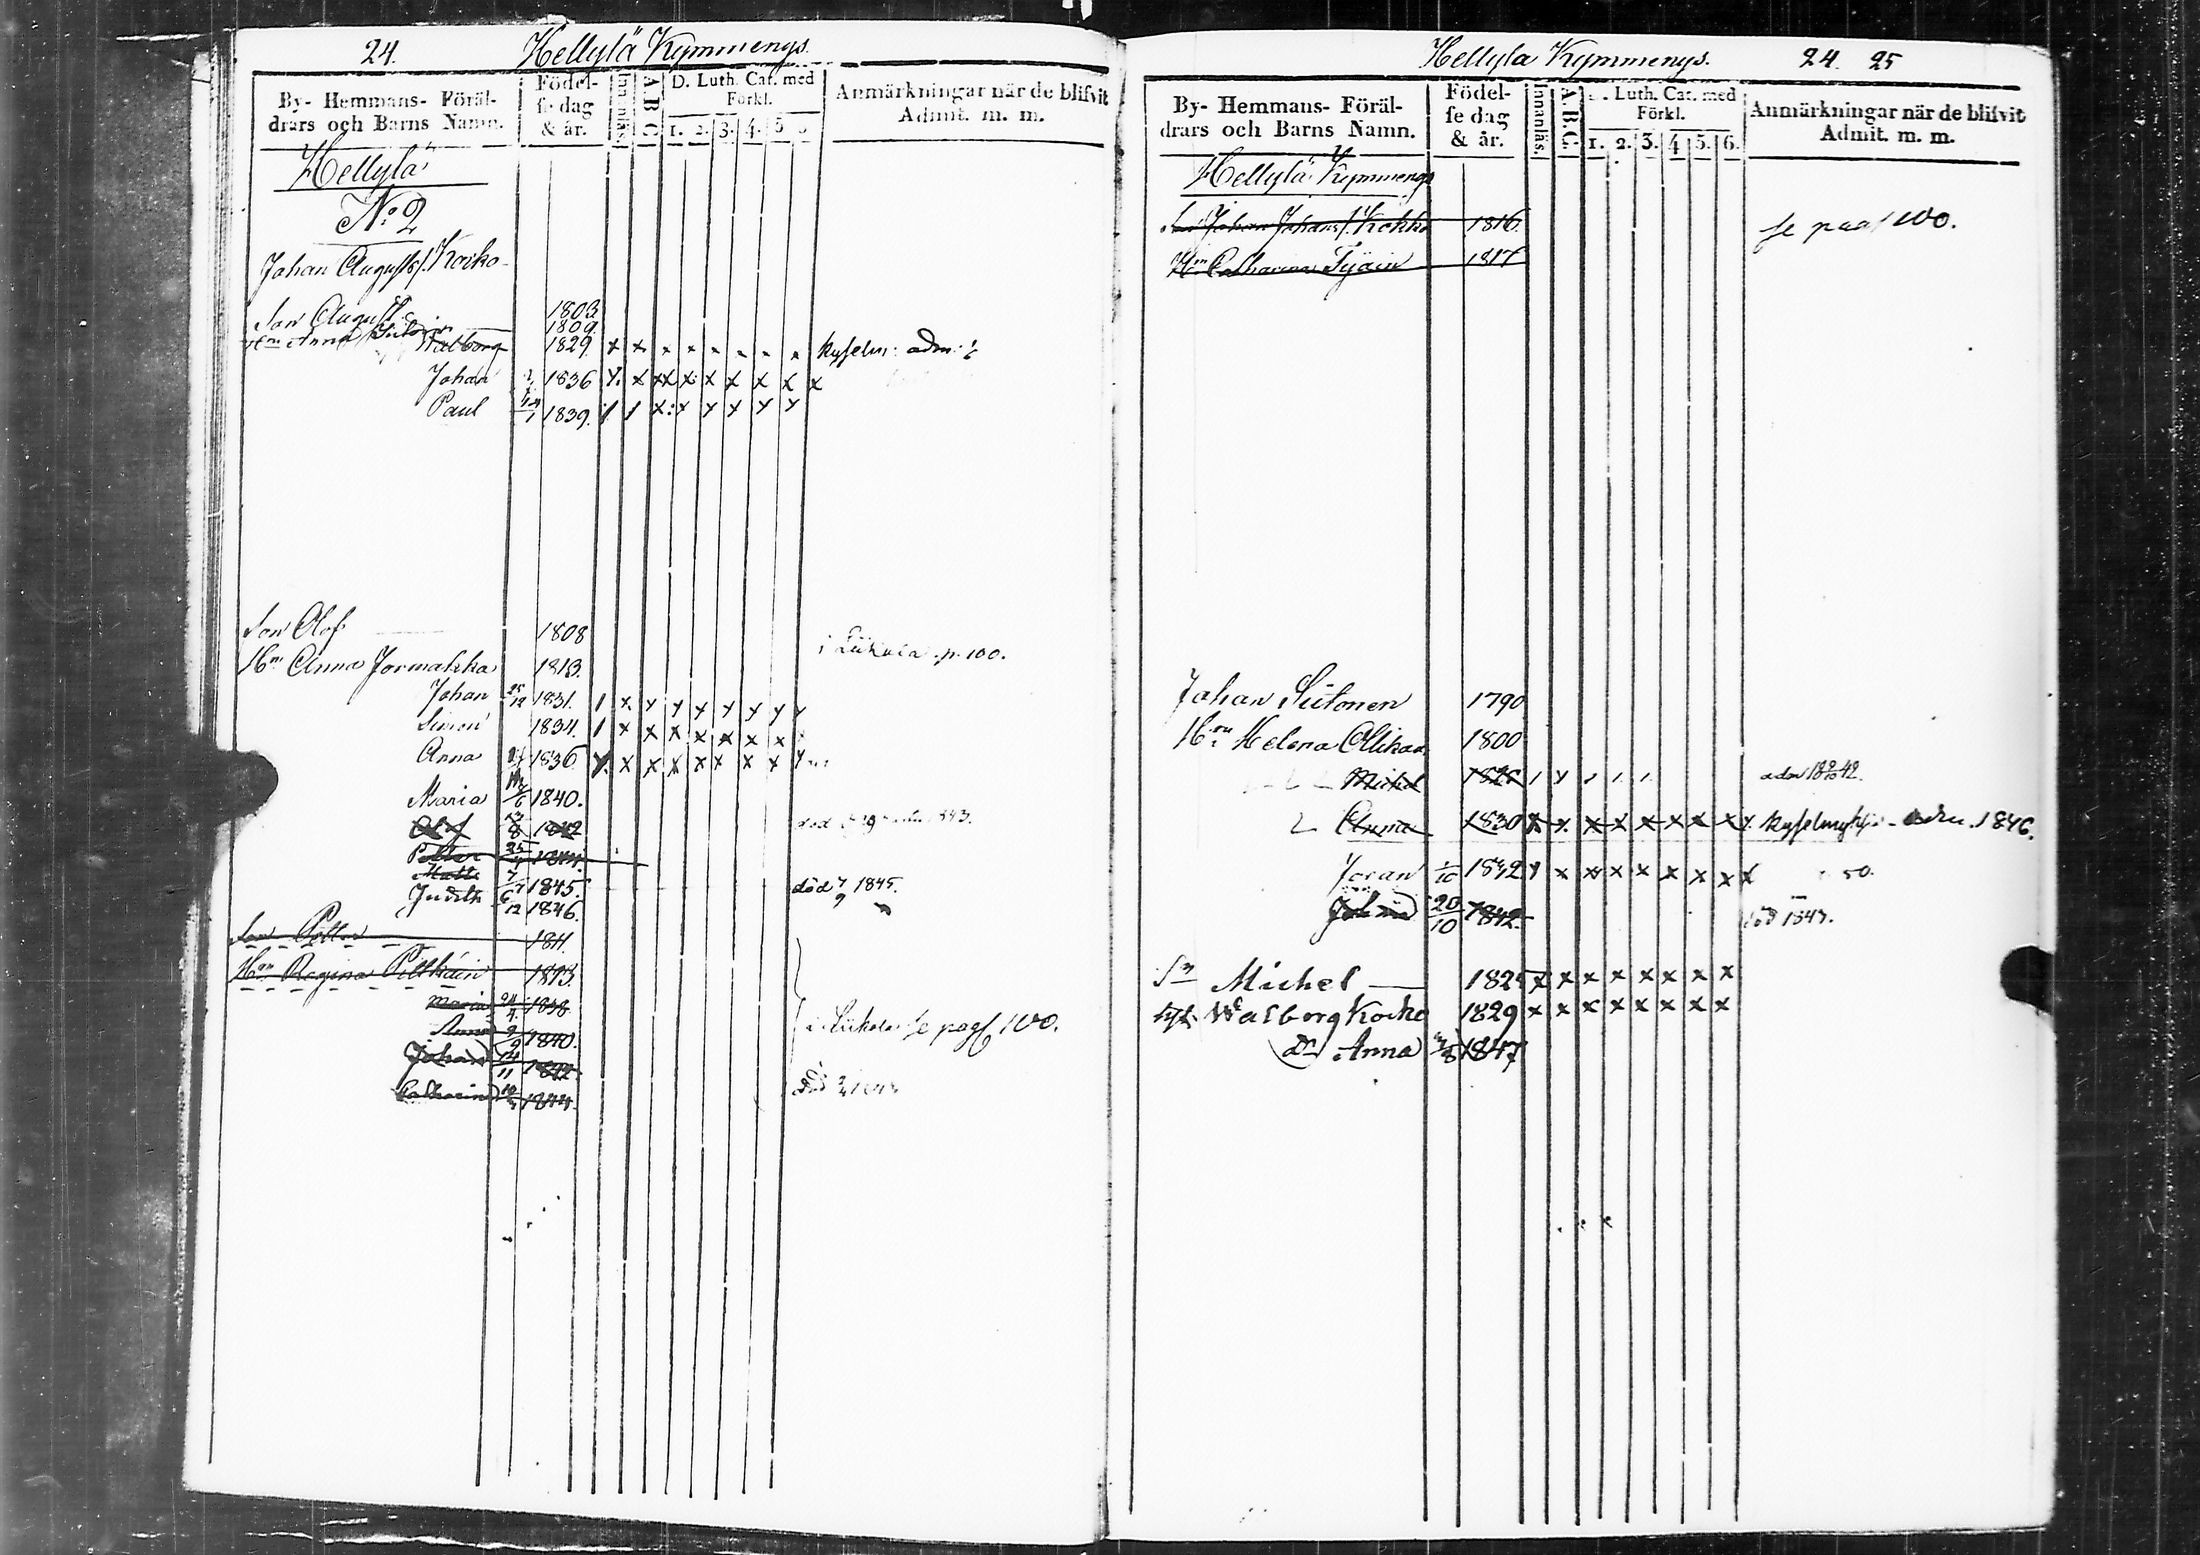 24. Hellylä Kymmengs.
By- Hemmans- Föräl-
drars och Barns Namn.
Födel-
se dag
& år.
Innanläs.
A.B.C.
D. Luth. Cat. med
Förkl.
1. 2. 3. 4. 5
Anmärkningar när de blifvit
Admit. m. m.
Hellylä
No 2
Johan Augusts/. Kocko
Son August 1803
Hru Anna 1809.
Walborg 1829. x x
Johan 1836 x x x x x x x x
Paul 1839. x x x x x x
Son Olof 1808
Hru Anna Jormakka 1813. p. 100.
Johan 25/12 1831.
Simon 1834.
Anna 1836
Maria 1840.
Olof 1842
Petter 25 1844
Matts 1845. död 7/9 1845.
Judith 6/12 1846.
Son Petter 1811.
Hru Regina Pitkäin 1813.
Maria 24/4 1838
Anna 9/9 1840. se pag/ 100.
Johan 14/11 1842
Catharina 1844
Hellyla Kymmengs. 24. 25
By- Hemmans- Föräl-
drars och Barns Namn.
Födel-
se dag
& år.
Innanläs.
A.B.C.
Luth. Cat. med
Förkl.
1. 2. 3. 4 5. 6.
Anmärkningar när de blifvit
Admit. m. m.
Hellylä Kymmengs
Son Johan Johans/. Kokko 1816. se pag/ 100.
Hn Catharina Tyäin 1817
Johan Siitonen 1790
Hru Helena Ollikain 1800
Michel 1826
Anna 1830 x x x x x x x x 1846.
Joran 1/10 1832 x x x x x x x x 50.
20/10 1842. död 1843.
Sn Michel 1825 x x x x x x x x
Walborg Kocko 1829 x x x x x x x x
dr Anna 1847